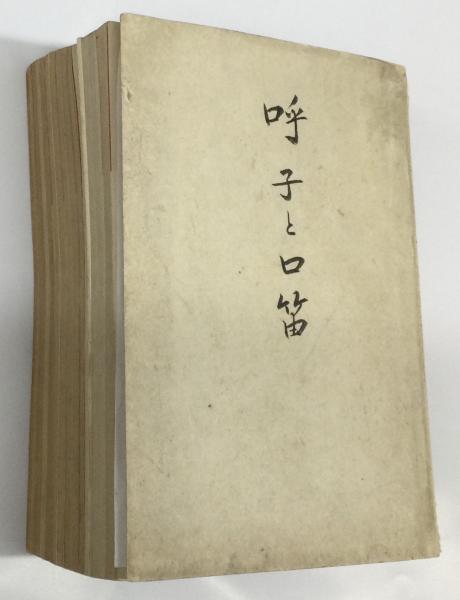 呼子と口笛